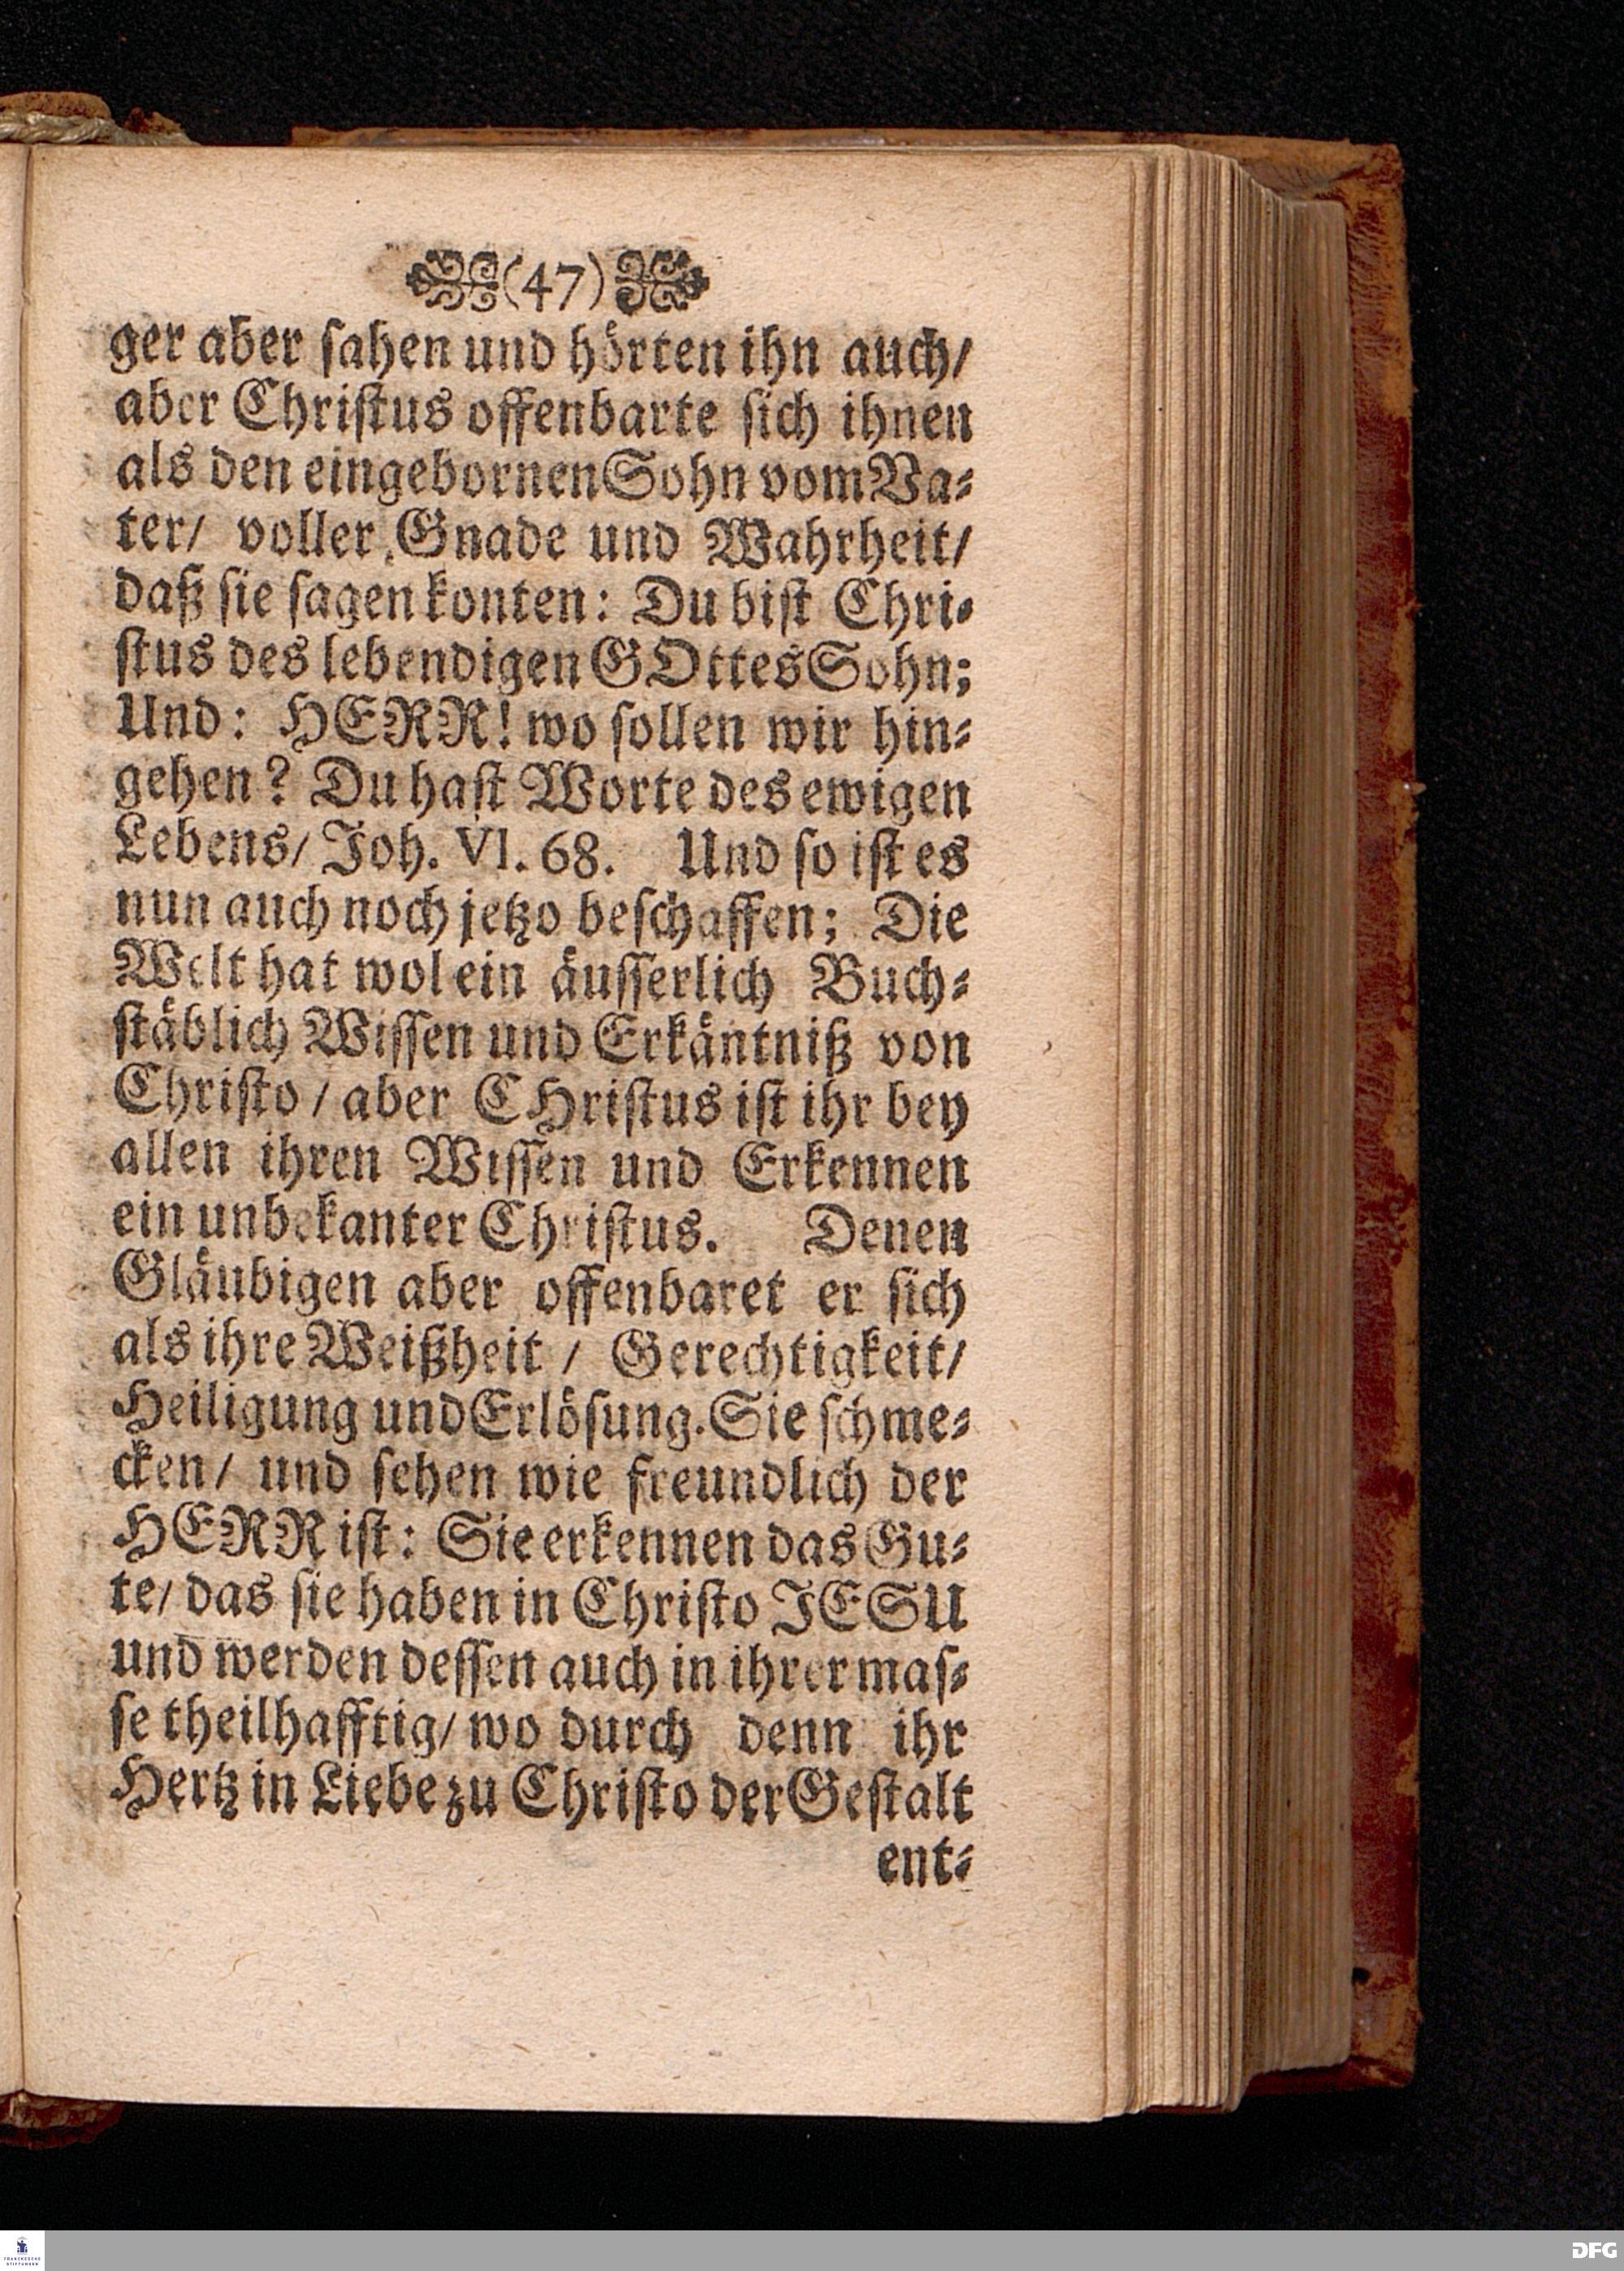 (47)
ger aber sahen und hörten ihn auch/
aber Christus offenbarte sich ihnen
als den eingebornen Sohn vom Va-
ter/ voller Gnade und Wahrheit/
daß sie sagen konten: Du bist Chri-
stus des lebendigen GOttes Sohn;
Und: HERR! wo sollen wir hin-
gehen? Du hast Worte des ewigen
Lebens/ Joh. VI. 68. Und so ist es
nun auch noch jetzo beschaffen; Die
Welt hat wol ein äusserlich Buch-
stäblich Wissen und Erkäntniß von
Christo / aber CHristus ist ihr bey
allen ihren Wissen und Erkennen
ein unbekanter Christus. Denen
Gläubigen aber offenbaret er sich
als ihre Weißheit / Gerechtigkeit/
Heiligung und Erlösung. Sie schme-
cken/ und sehen wie freundlich der
HERR ist: Sie erkennen das Gu-
te/ das sie haben in Christo JESU
und werden dessen auch in ihrer mas-
se theilhafftig/ wo durch denn ihr
Hertz in Liebe zu Christo der Gestalt
ent-
FRANCKESCHE
STIFTUNGEN
DFG